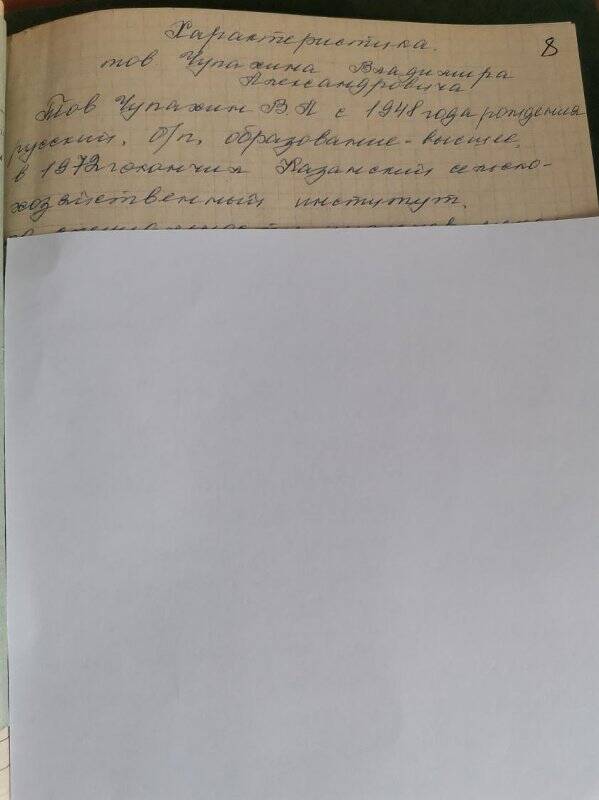 8
Характеристика.
тов Чупахина Владимира
Александровича
Тов Чупахин В А с 1948 года рождения
русский, б/п, образование - высшее,
в 1972 г окончил Казанский сельско-
хозяйственный институт.